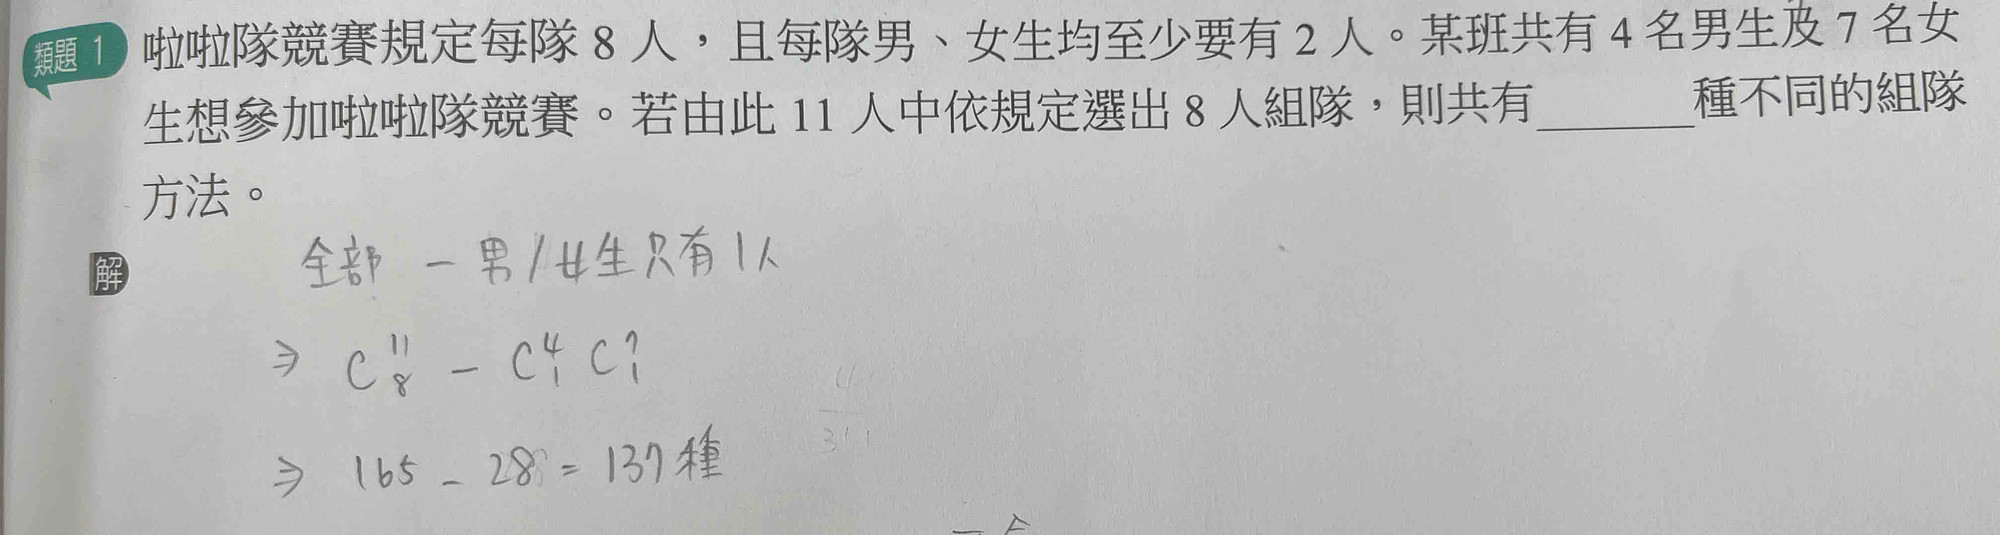 類題 1 啦啦隊競賽規定每隊 8 人，且每隊男、女生均至少要有 2 人。某班共有 4 名男生及 7 名女
生想參加啦啦隊競賽。若由此 11 人中依規定選出 8 人組隊，則共有______種不同的組隊
方法。
解 全部 － 男/女生只有1人
⇒ C¹¹₈ － C⁴₁ C⁷₁
⇒ 165 － 28 = 137 種